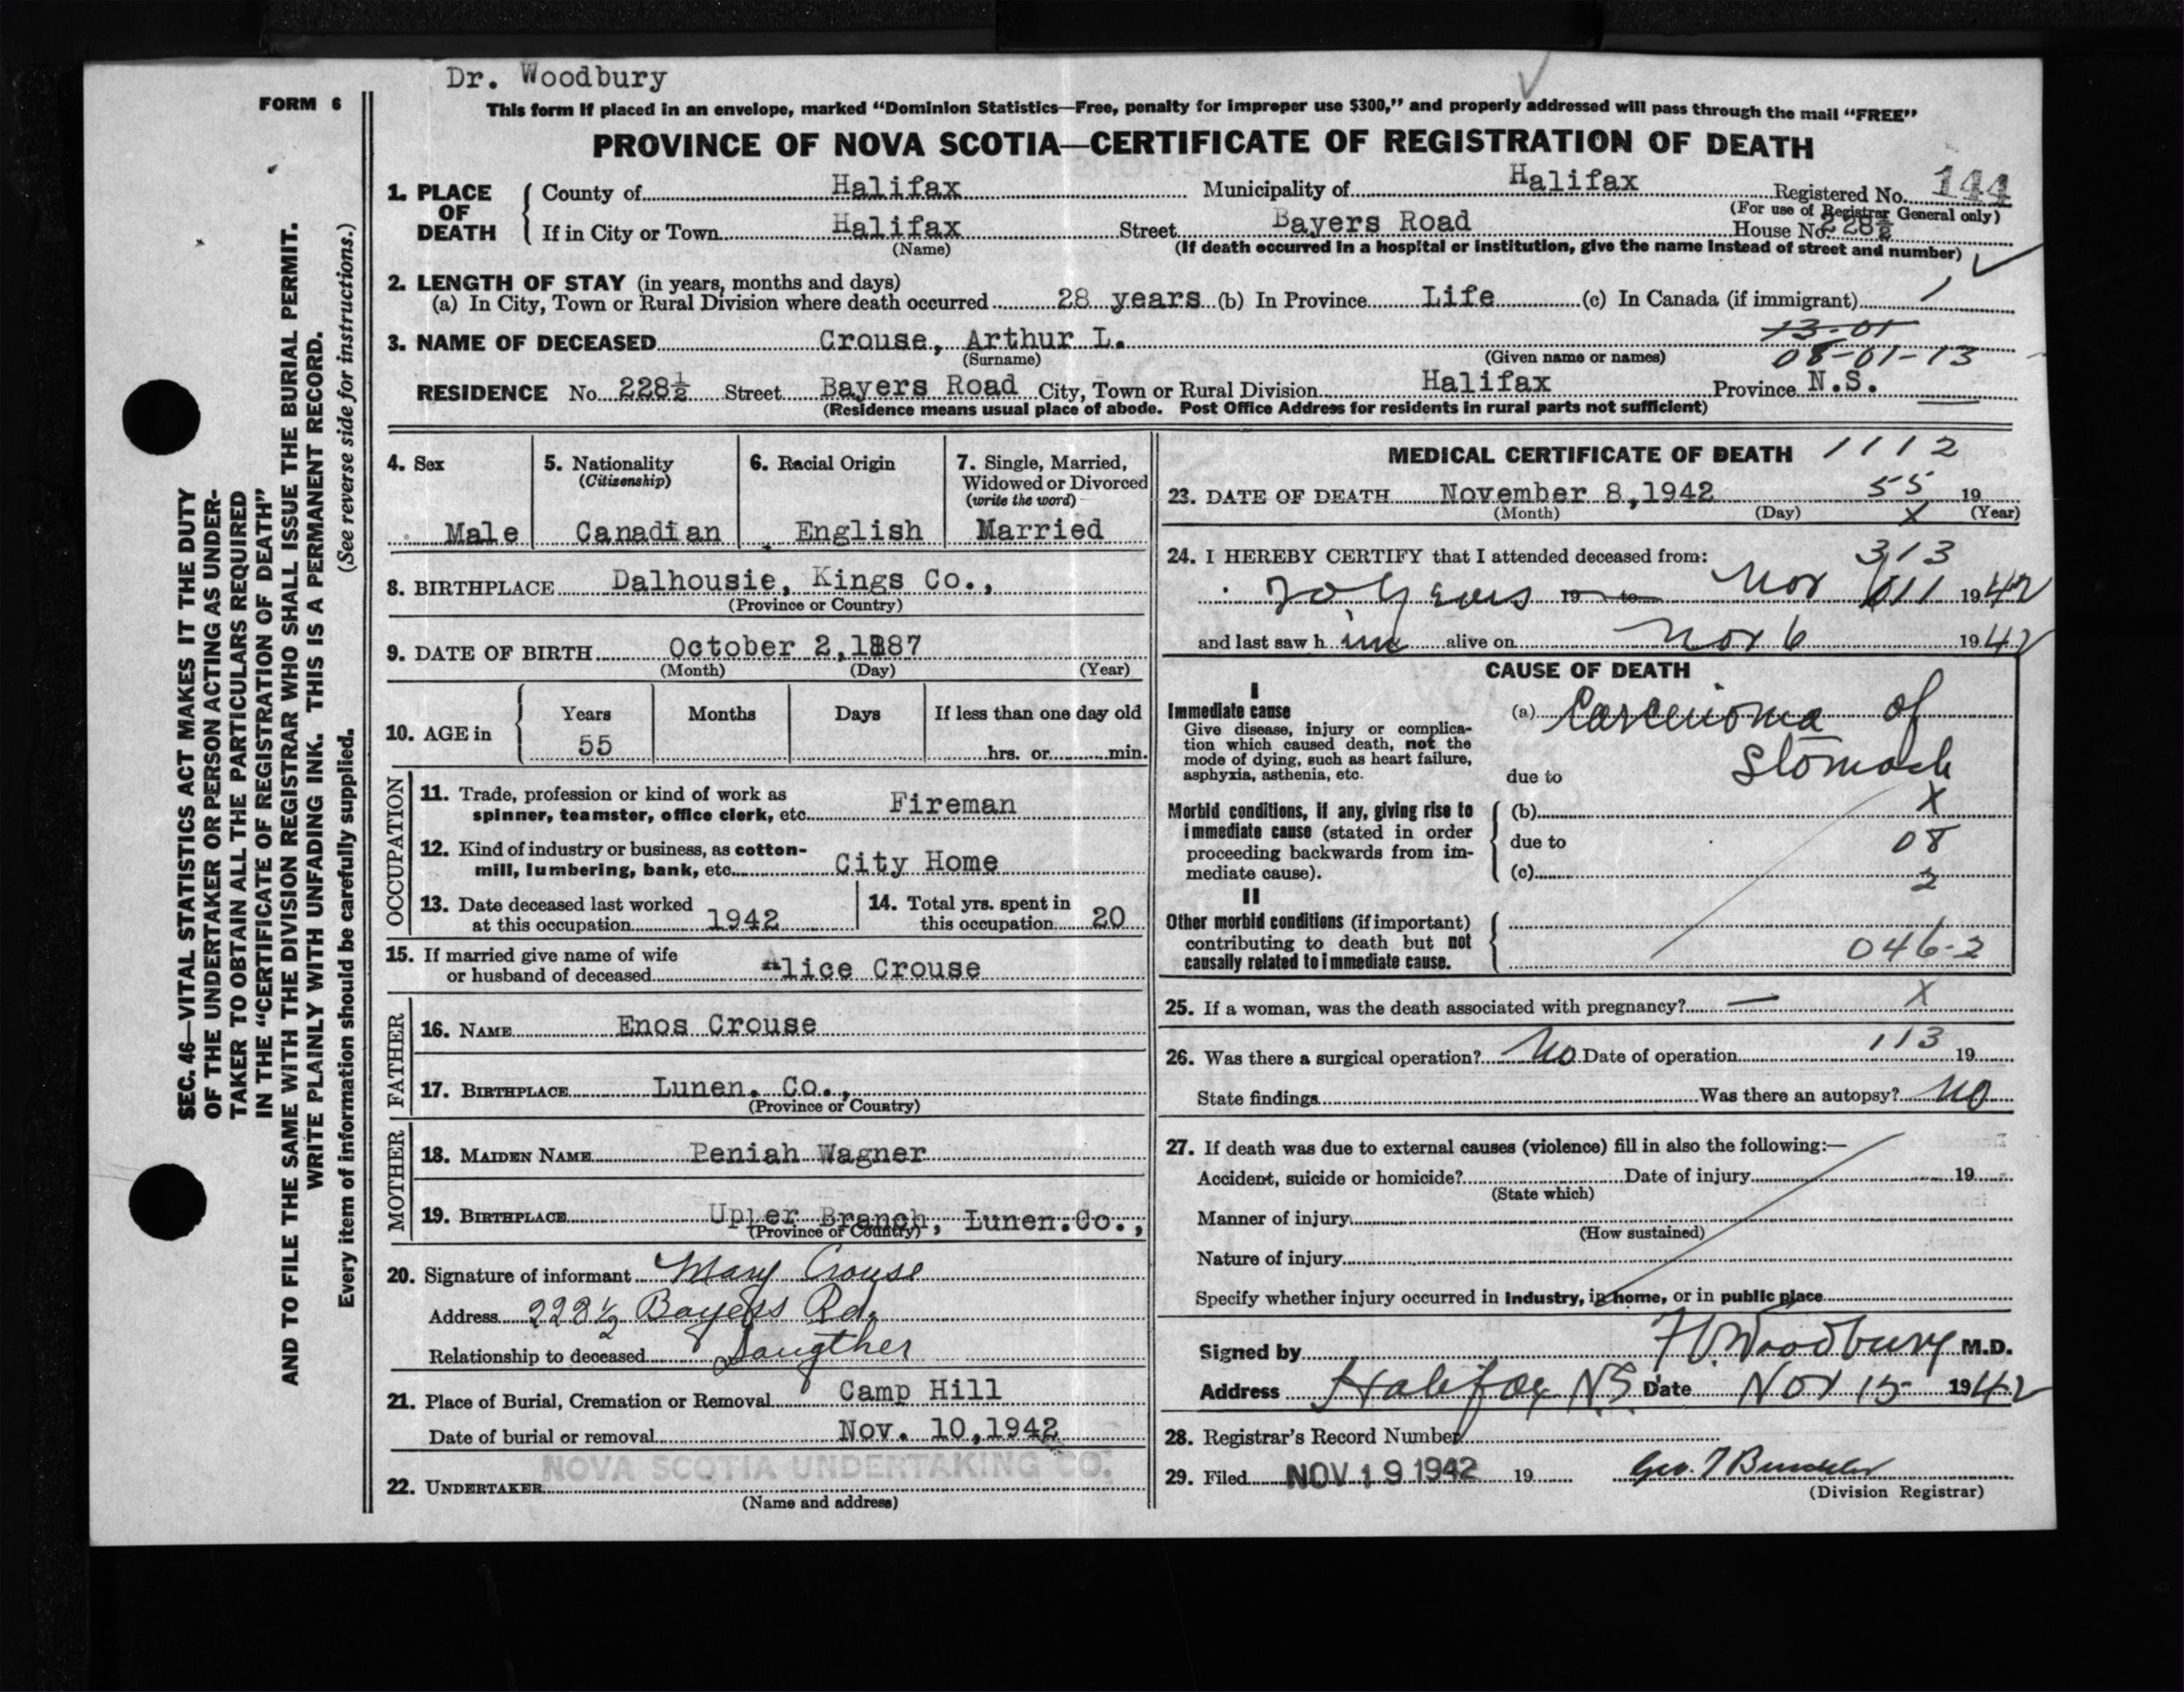 Dr. Woodbury
FORM 6
This form if placed in an envelope, marked "Dominion Statistics—Free, penalty for improper use $300," and properly addressed will pass through the mail "FREE"
PROVINCE OF NOVA SCOTIA—CERTIFICATE OF REGISTRATION OF DEATH
SEC. 46—VITAL STATISTICS ACT MAKES IT THE DUTY
OF THE UNDERTAKER OR PERSON ACTING AS UNDER-
TAKER TO OBTAIN ALL THE PARTICULARS REQUIRED
IN THE "CERTIFICATE OF REGISTRATION OF DEATH"
AND TO FILE THE SAME WITH THE DIVISION REGISTRAR WHO SHALL ISSUE THE BURIAL PERMIT.
WRITE PLAINLY WITH UNFADING INK. THIS IS A PERMANENT RECORD.
Every item of information should be carefully supplied. (See reverse side for instructions.)
1. PLACE OF DEATH
County of Halifax Municipality of Halifax Registered No. 144
(For use of Registrar General only)
If in City or Town Halifax Street Bayers Road House No. 228½
(Name) (If death occurred in a hospital or institution, give the name instead of street and number)
2. LENGTH OF STAY (in years, months and days)
(a) In City, Town or Rural Division where death occurred 28 years (b) In Province Life (c) In Canada (if immigrant) /
13-01
3. NAME OF DECEASED Crouse, Arthur L.
(Surname) (Given name or names) 08-01-13
RESIDENCE No. 228½ Street Bayers Road City, Town or Rural Division Halifax Province N.S.
(Residence means usual place of abode. Post Office Address for residents in rural parts not sufficient)
4. Sex
Male
5. Nationality
(Citizenship)
Canadian
6. Racial Origin
English
7. Single, Married,
Widowed or Divorced
(write the word)
Married
8. BIRTHPLACE Dalhousie, Kings Co.,
(Province or Country)
9. DATE OF BIRTH October 2,1887
(Month) (Day) (Year)
10. AGE in
Years Months Days If less than one day old
55 hrs. or min.
OCCUPATION
11. Trade, profession or kind of work as
spinner, teamster, office clerk, etc. Fireman
12. Kind of industry or business, as cotton-
mill, lumbering, bank, etc. City Home
13. Date deceased last worked
at this occupation 1942
14. Total yrs. spent in
this occupation 20
15. If married give name of wife
or husband of deceased Alice Crouse
FATHER
16. NAME Enos Crouse
17. BIRTHPLACE Lunen. Co.,
(Province or Country)
MOTHER
18. MAIDEN NAME Peniah Wagner
19. BIRTHPLACE Upper Branch, Lunen.Co.,
(Province or Country)
20. Signature of informant Mary Crouse
Address 228½ Bayers Rd.
Relationship to deceased Daugther
21. Place of Burial, Cremation or Removal Camp Hill
Date of burial or removal Nov. 10,1942
NOVA SCOTIA UNDERTAKING CO.
22. UNDERTAKER
(Name and address)
MEDICAL CERTIFICATE OF DEATH 1112
23. DATE OF DEATH November 8,1942 55 19
(Month) (Day) X (Year)
24. I HEREBY CERTIFY that I attended deceased from: 313
20 Years 19 to Nov 1942
and last saw h im alive on Nov 6 1942
CAUSE OF DEATH
I
Immediate cause
Give disease, injury or complica-
tion which caused death, not the
mode of dying, such as heart failure,
asphyxia, asthenia, etc.
(a) Carcenoma of
Stomach
due to
Morbid conditions, if any, giving rise to
immediate cause (stated in order
proceeding backwards from im-
mediate cause).
(b) X
due to 08
(c) 2
II
Other morbid conditions (if important)
contributing to death but not
causally related to immediate cause.
046-2
25. If a woman, was the death associated with pregnancy? — X
26. Was there a surgical operation? No Date of operation 113 19
State findings Was there an autopsy? No
27. If death was due to external causes (violence) fill in also the following:—
Accident, suicide or homicide? Date of injury 19
(State which)
Manner of injury
(How sustained)
Nature of injury
Specify whether injury occurred in industry, in home, or in public place
Signed by Woodbury M.D.
Address Halifax N.S. Date Nov 15 1942
28. Registrar's Record Number
29. Filed NOV 19 1942 19
(Division Registrar)